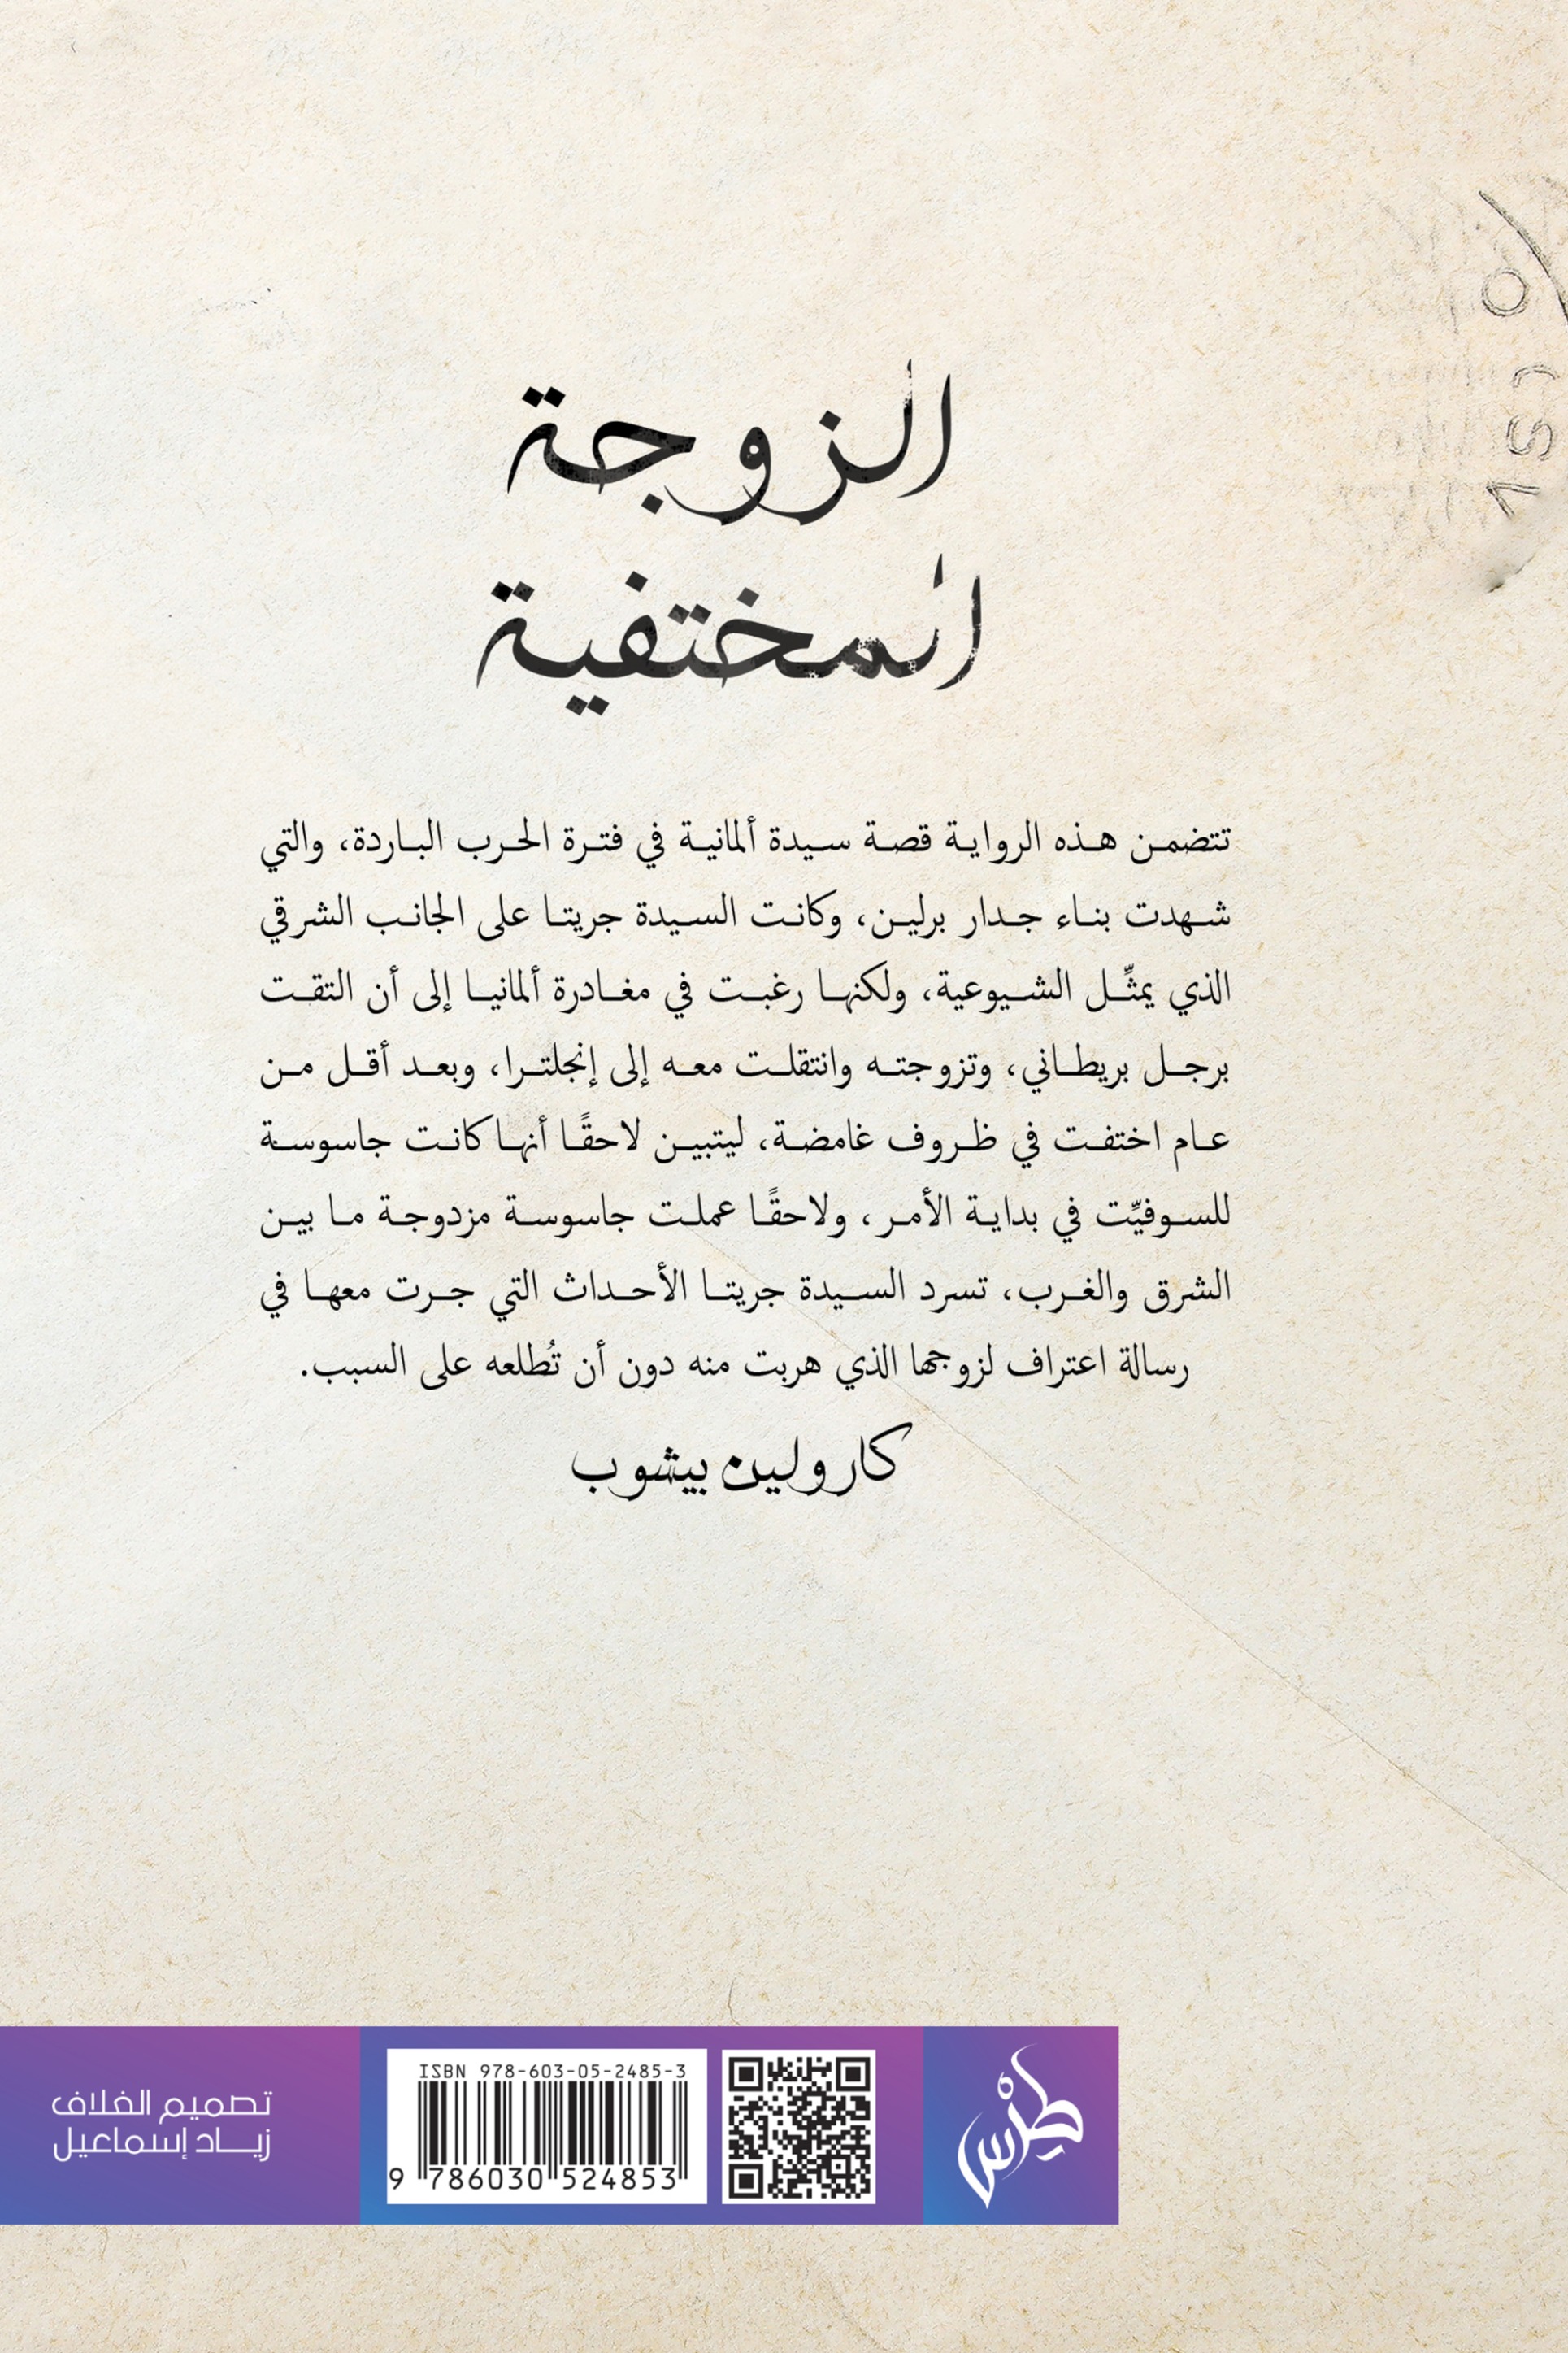 الزوجة
المختفية
تتضمن هذه الرواية قصة سيدة ألمانية في فترة الحرب الباردة، والتي
شهدت بناء جدار برلين، وكانت السيدة جريتا على الجانب الشرقي
الذي يمثِّل الشيوعية، ولكنها رغبت في مغادرة ألمانيا إلى أن التقت
برجل بريطاني، وتزوجته وانتقلت معه إلى إنجلترا، وبعد أقل من
عام اختفت في ظروف غامضة، ليتبين لاحقًا أنها كانت جاسوسة
للسوفيِّت في بداية الأمر، ولاحقًا عملت جاسوسة مزدوجة ما بين
الشرق والغرب، تسرد السيدة جريتا الأحداث التي جرت معها في
رسالة اعتراف لزوجها الذي هربت منه دون أن تُطلعه على السبب.
كارولين بيشوب
طرس
ISBN 978-603-05-2485-3
9 786030 524853
تصميم الغلاف
زياد إسماعيل